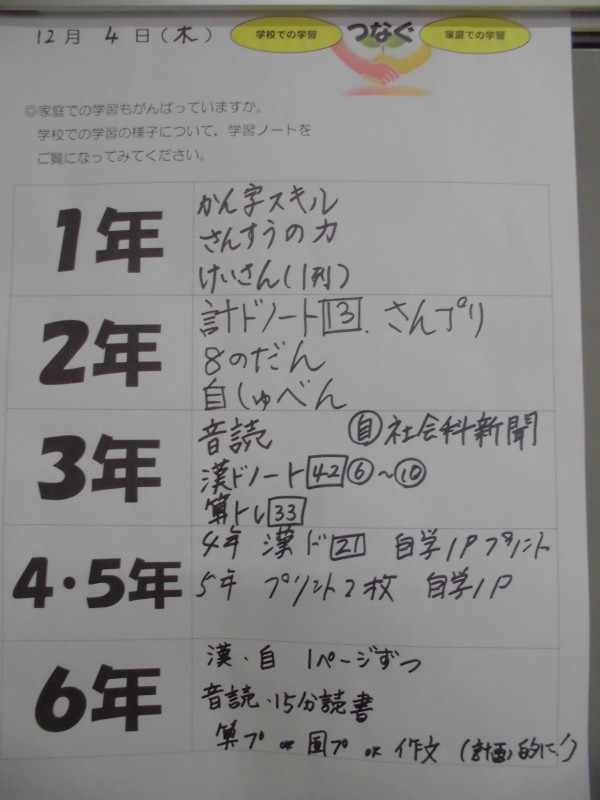 12月 4日(木)
学校での学習 つなぐ 家庭での学習
◎家庭での学習もがんばっていますか。
学校での学習の様子について、学習ノートを
ご覧になってみてください。
1年
かん字スキル
さんすうの力
けいさん(1列)
2年
計ドノート13. さんプリ
8のだん
自しゅべん
3年
音読 ㊀自 社会科新聞
漢ドノート42⑥~⑩
算トレ33
4・5年
4年 漢ド21 自学1Pプリント
5年 プリント2枚 自学1P
6年
漢・自 1ページずつ
音読・15分読書
算プ or 国プ or 作文 (計画的に!)